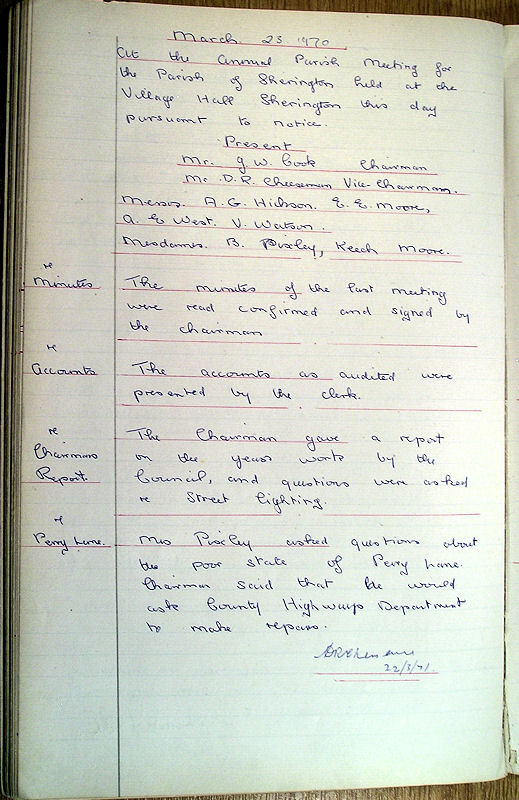 March. 23. 1970
At the annual Parish Meeting for
the Parish of Sherington held at the
Village Hall Sherington this day
pursuant to notice.
Present
Mr. G. W. Cook Chairman
Mr. D. R. Cheeseman Vice-Chairman.
Messrs. A. G. Hickson. E. E. Moore,
A. E West. V. Watson.
Mesdames. B. Pixley, Keech Moore.
re
Minutes
The minutes of the last meeting
were read confirmed and signed by
the chairman
re
Accounts
The accounts as audited were
presented by the clerk.
re
Chairmans
Report.
The Chairman gave a report
on the years work by the
Council, and questions were asked
re Street lighting.
re
Perry Lane.
Mrs Pixley asked questions about
the poor state of Perry Lane.
Chairman said that he would
ask County Highways Department
to make repairs.
22/3/71.